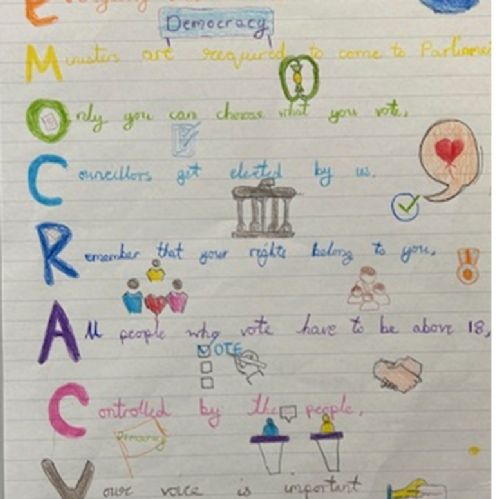 E
Democracy
Ministers are required to come to Parliamen
Only you can choose what you vote.
Councillors get elected by us.
Remember that your rights belong to you.
All people who vote have to be above 18,
VOTE
Controlled by the people.
Democracy
Your voice is important